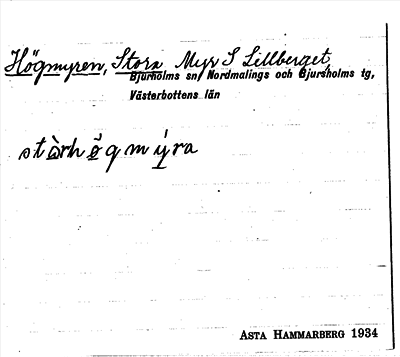 Högmyren, Stora Myr S Lillberget,
Bjurholms sn, Nordmalings och Bjursholms tg,
Västerbottens län
stòrhøgmýra
ASTA HAMMARBERG 1934